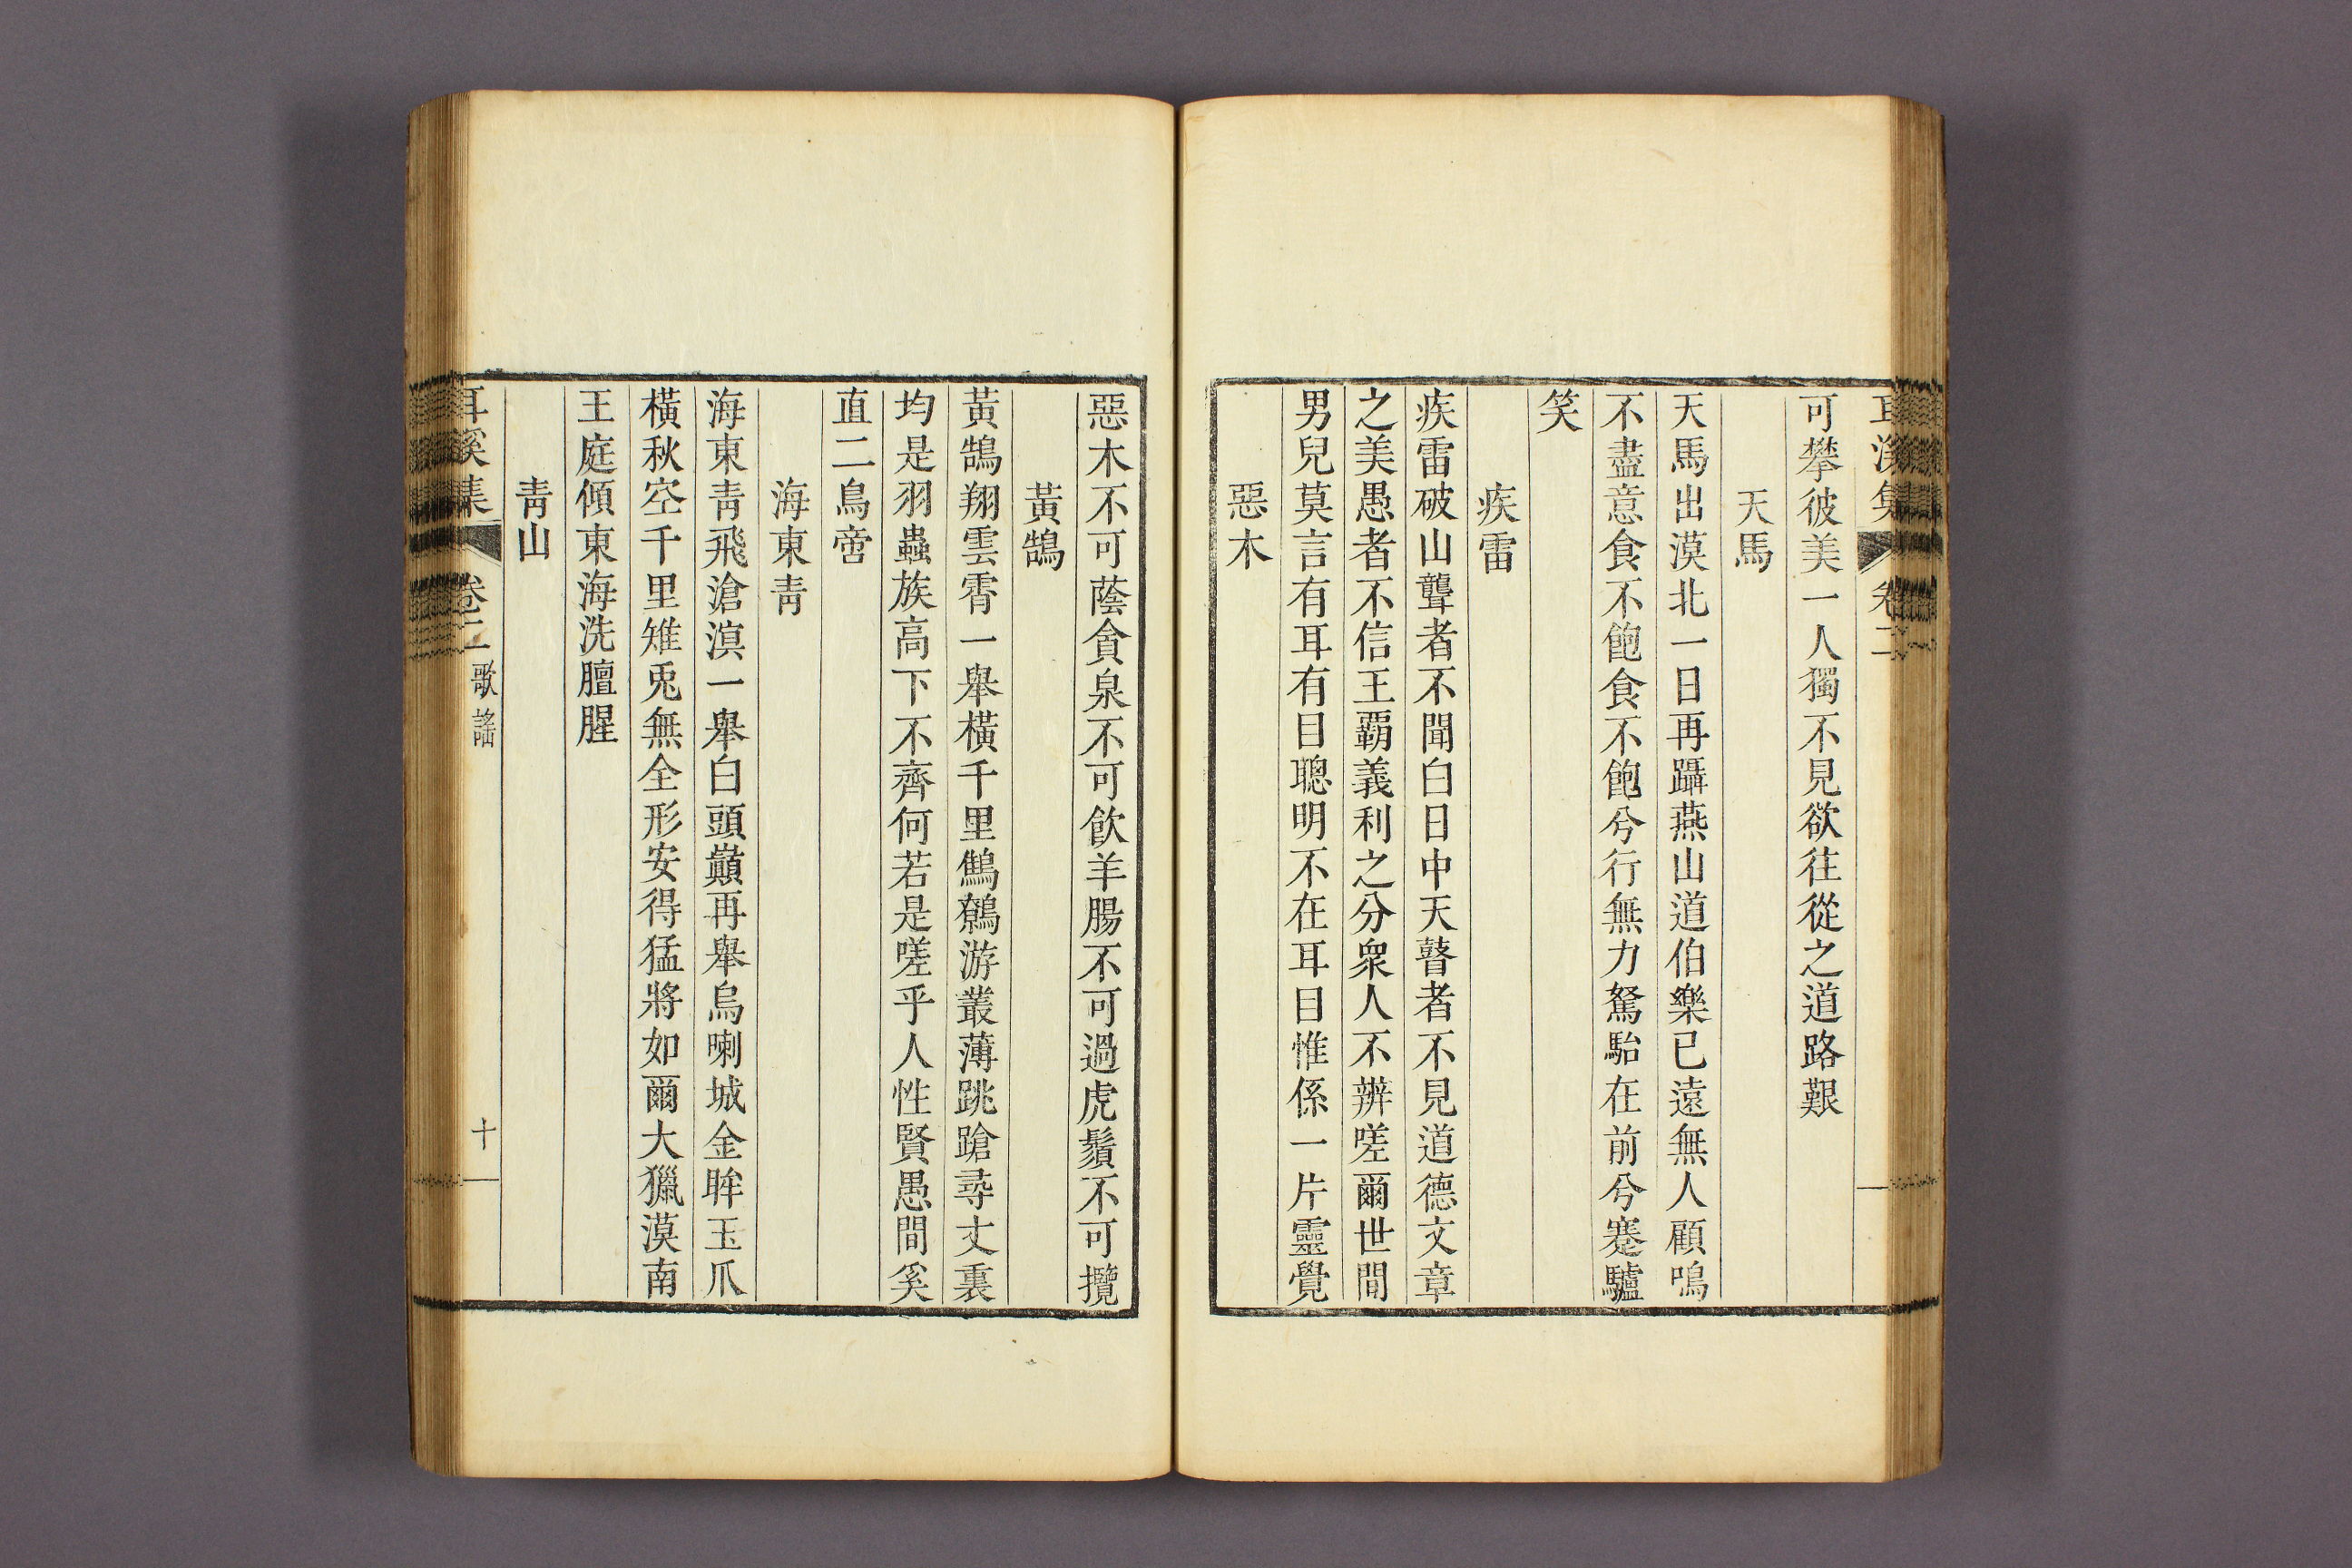 耳溪集 卷二
可攀彼美一人獨不見欲往從之道路艱
天馬
天馬出漠北一日再躡燕山道伯樂已遠無人顧鳴
不盡意食不飽食不飽兮行無力駑駘在前兮蹇驢
笑
疾雷
疾雷破山聾者不聞白日中天瞽者不見道德文章
之美愚者不信王覇義利之分衆人不辨嗟爾世間
男兒莫言有耳有目聰明不在耳目惟係一片靈覺
惡木
惡木不可蔭貪泉不可飮羊腸不可過虎鬚不可攬
黃鵠
黃鵠翔雲霄一舉橫千里鷦鷯游叢薄跳蹌尋丈裏
均是羽蟲族高下不齊何若是嗟乎人性賢愚間奚
直二鳥啻
海東靑
海東靑飛滄溟一舉白頭巓再舉烏喇城金眸玉爪
橫秋空千里雉兎無全形安得猛將如爾大獵漠南
王庭傾東海洗膻腥
靑山
耳溪集 卷二 歌謠 十